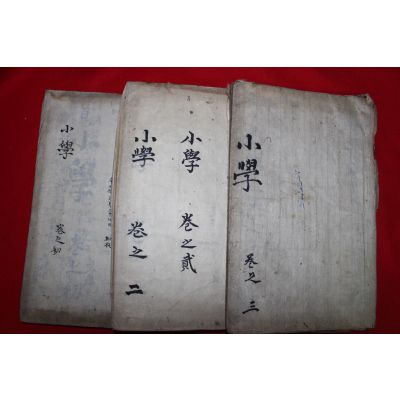 小學
卷之三
小學
卷之貳
小學
卷之二
小學
卷之初